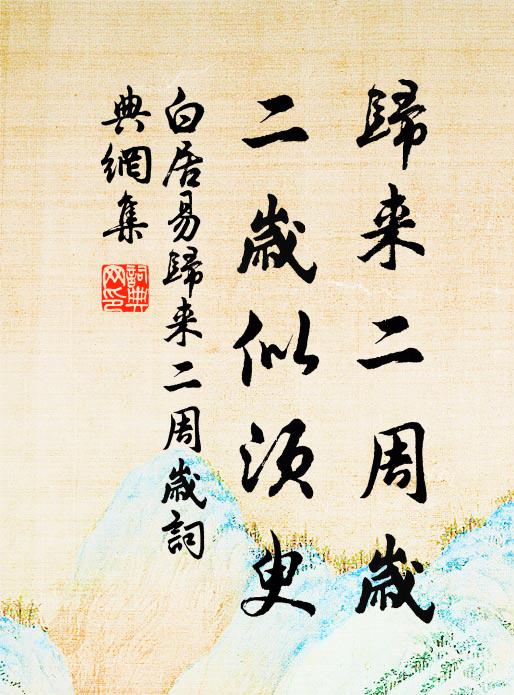 歸来二周歲
二歲似須臾
白居易歸来二周歲詞
典網集
詞典
网印